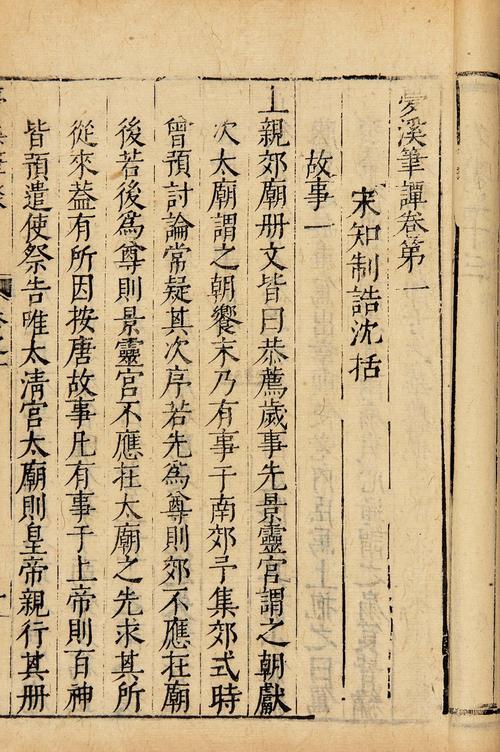 夢溪筆譚卷第一
宋知制誥沈括
故事一
上親郊廟册文皆曰恭薦歲事先景靈官謂之朝獻
次太廟謂之朝饗末乃有事于南郊予集郊式時
曾預討論常疑其次序若先為尊則郊不應在廟
後若後為尊則景靈官不應在太廟之先求其所
從來盖有所因按唐故事凡有事于上帝則百神
皆預遣使祭告唯太清宮太廟則皇帝親行其册